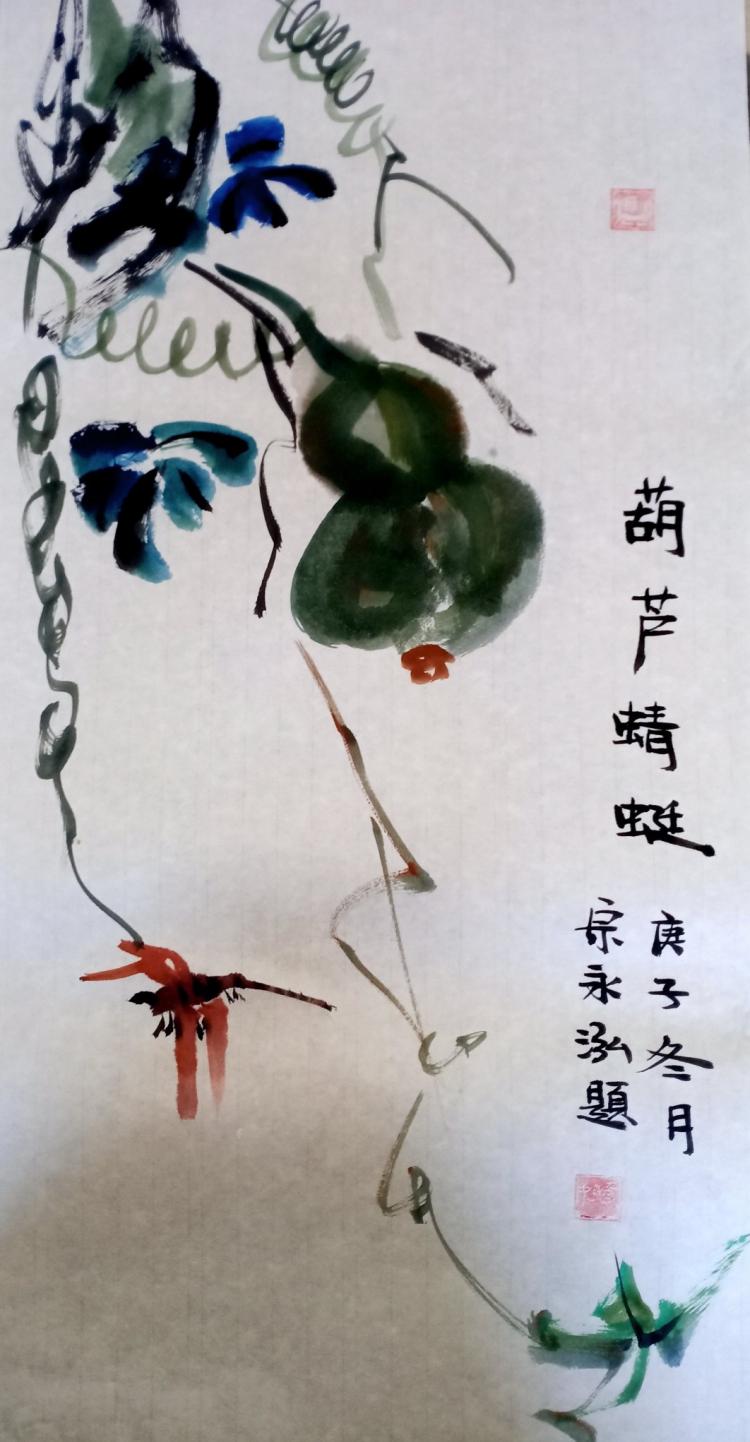 葫芦蜻蜓
庚子冬月
宗永泓題